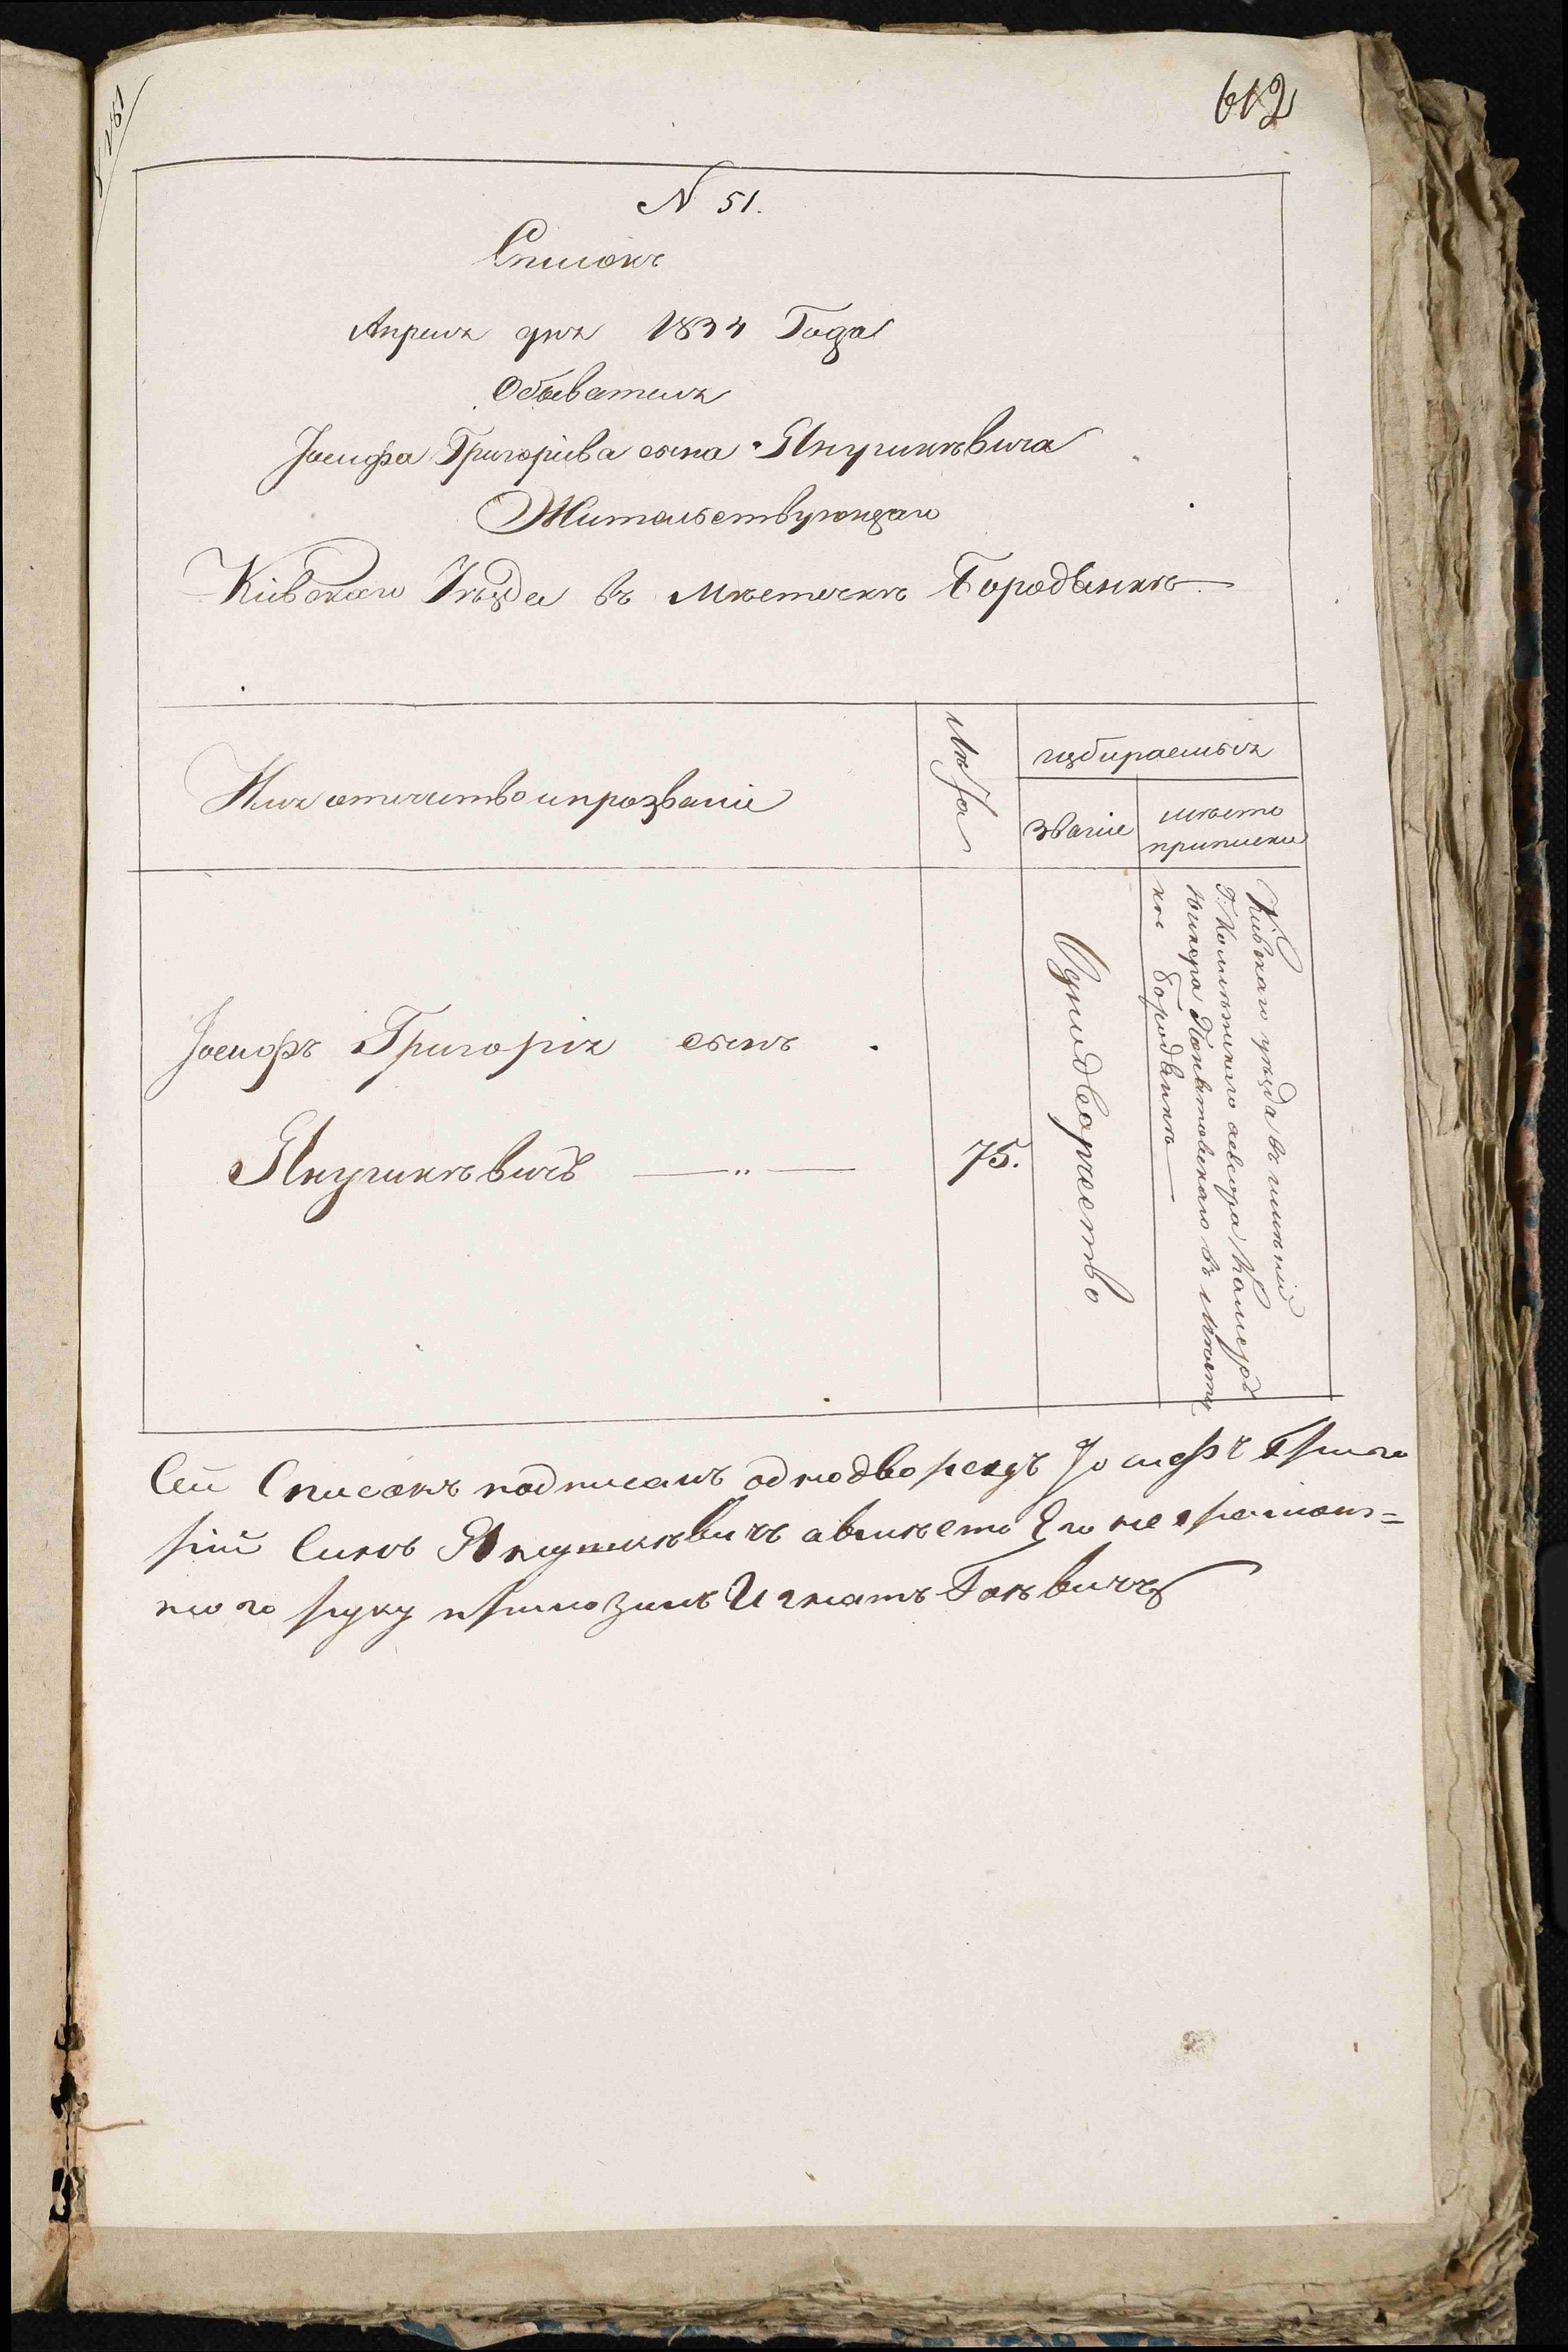 612
N 51.
Списокъ
Апреля дня 1834 Года
Обывателя
Іосифа Григоріева сына Янушкѣвича
Жительствующаго
Кіевскаго Уѣзда въ Мѣстечкѣ Бородянкѣ
Имя отичество и прозваніе
Лѣта
избираемыя
званіе
мѣсто
приписки
Іосифъ Григорія сынъ
75.
Однодворчество
Кіевскаго уѣзда въ имѣніи
Г. Колежскаго асесора Камеръ
юнкера Понятовскаго въ мѣстеч
кѣ Бородянкѣ
Сей Списокъ подписалъ однодворецъ Іосифъ Григо
рій Синъ авмѣсто Его неграмот=
ного руку приложилъ Игнатъ